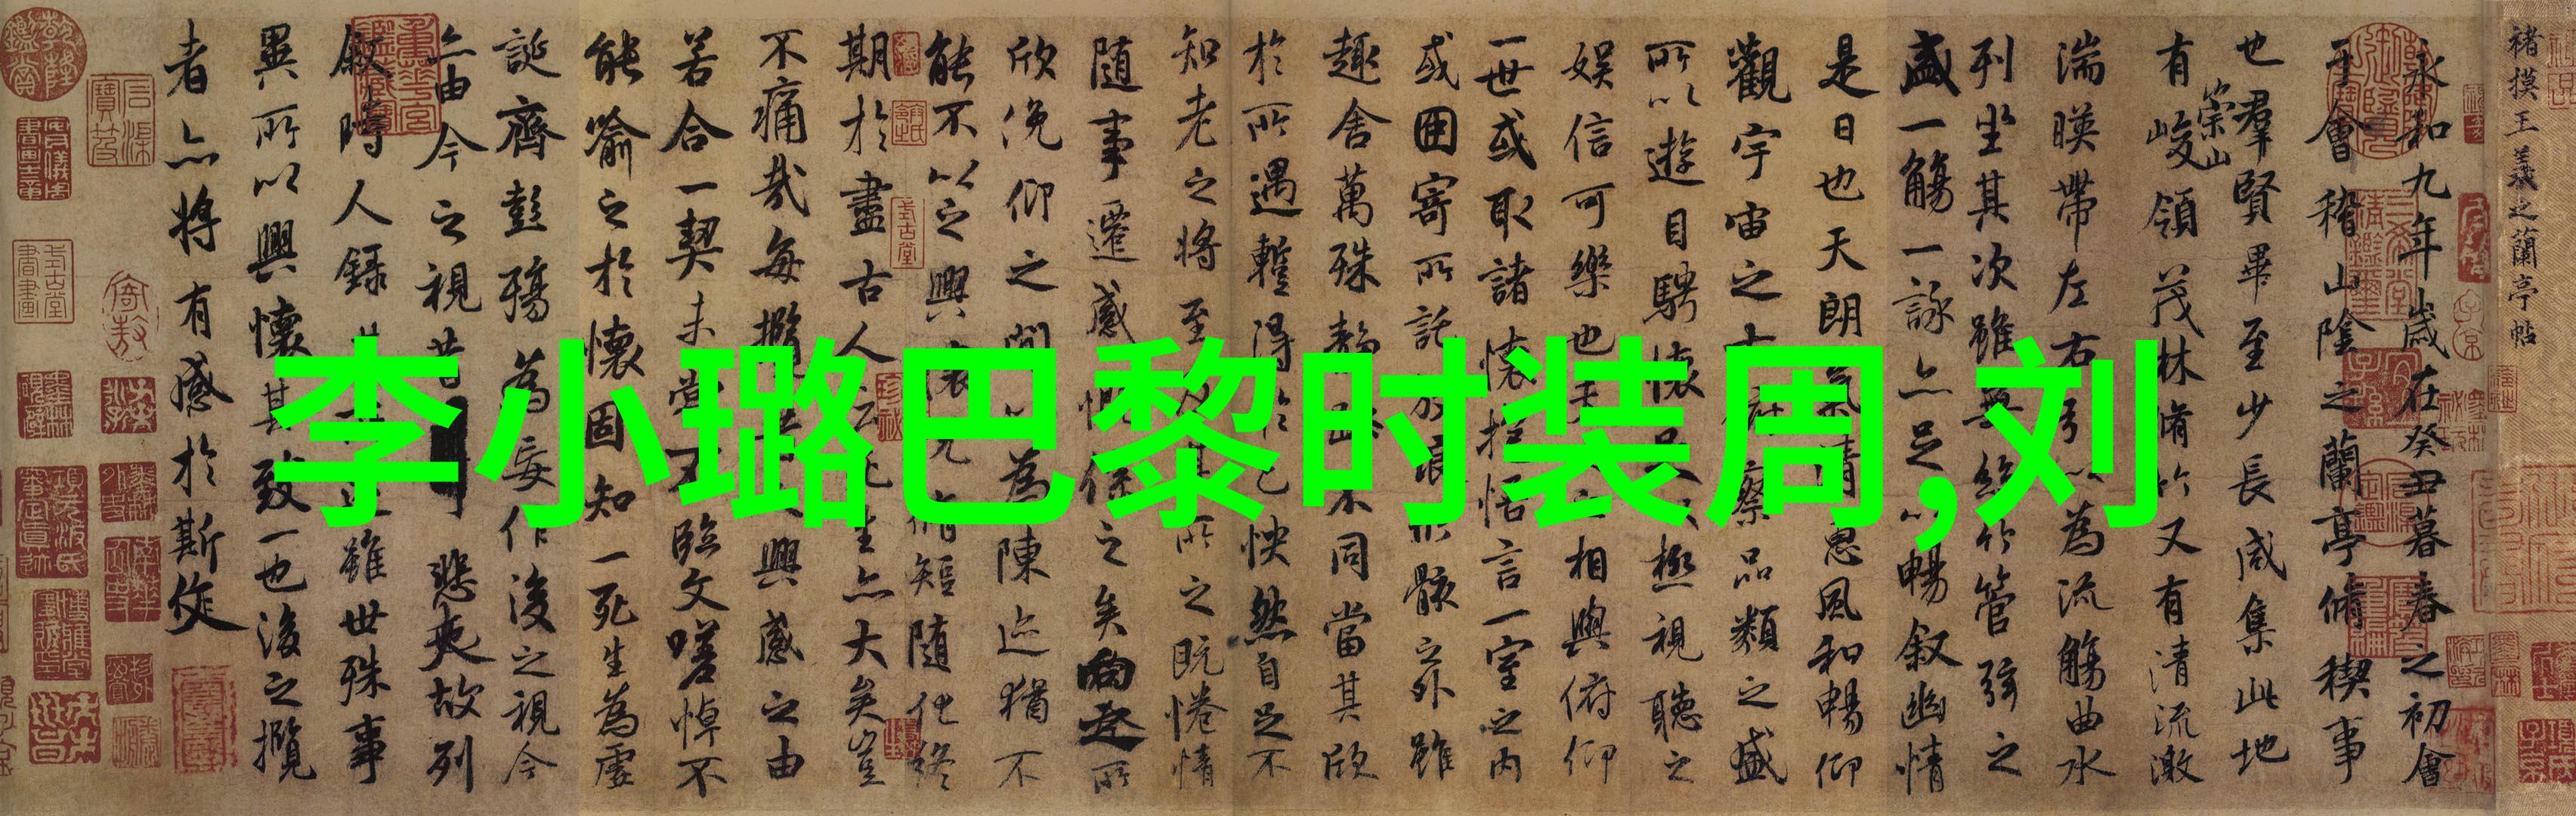 李小璐巴黎时装周,刘
褚摸王羲之蘭亭帖
永和九年歲在癸丑暮春之初會
于會稽山陰之蘭亭脩稧事
也羣賢畢至少長咸集此地
有崇山峻領茂林脩竹又有清流激
湍暎帶左右引以為流觴曲水
列坐其次雖無絲竹管弦之
盛一觴一詠亦足以暢叙幽情
是日也天朗氣清惠風和暢仰
觀宇宙之大俯察品類之盛
所以遊目騁懷足以極視聽之
娛信可樂也夫人之相與俯仰
一世或取諸懷抱悟言一室之內
或因寄所託放浪形骸之外雖
趣舍萬殊靜躁不同當其欣
於所遇蹔得於己怏然自足不
知老之將至及其所之既惓情
隨事遷感慨係之矣向之所
欣俛仰之閒以為陳迹猶不
能不以之興懷況脩短隨化終
期於盡古人云死生亦大矣豈
不痛哉每攬昔人興感之由
若合一契未嘗不臨文嗟悼不
能喻之於懷固知一死生為虛
誕齊彭殤為妄作後之視今
亦由今之視昔悲夫故列
叙時人錄其所述雖世殊事
異所以興懷其致一也後之攬
者亦將有感於斯文